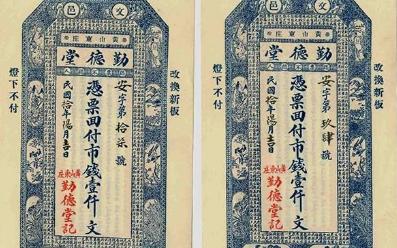 文邑
黄山東庄
勤德堂
改換新板
安字第拾柒號
憑票面付市錢壹仟文
民國拾年陽月吉日
黄山東庄
勤德堂記
燈下不付
文邑
黄山東庄
勤德堂
改換新板
安字第玖肆號
憑票面付市錢壹仟文
民國拾年陽月吉日
黄山東庄
勤德堂記
燈下不付